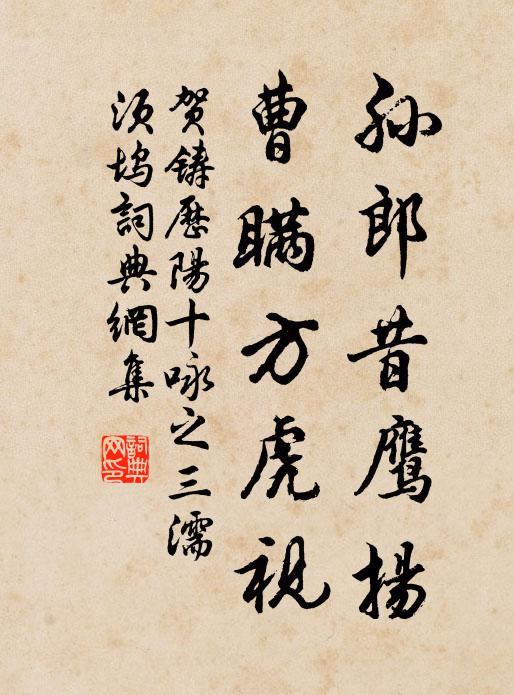 孙郎昔鹰扬
曹瞒方虎视
贺铸歷陽十咏之三濡
须坞詞典網集
詞典
网印